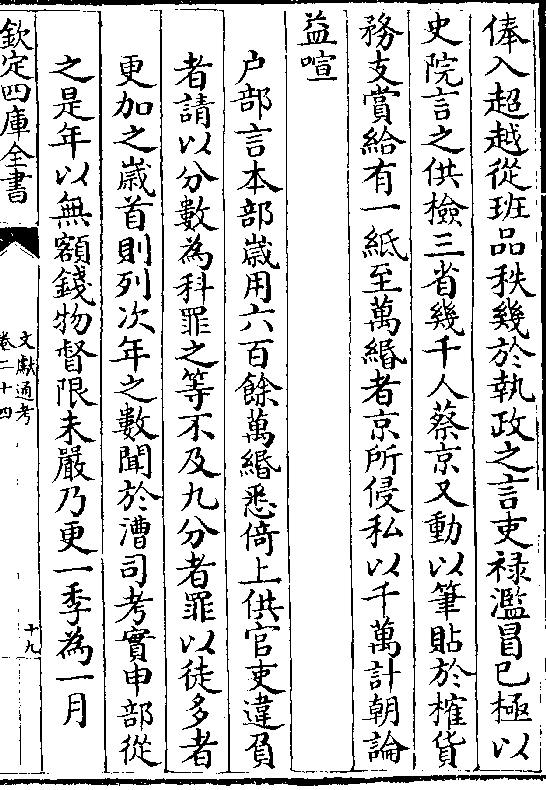 俸入超越從班品秩幾於執政之言吏禄濫冒已極以
史院言之供檢三省幾千人蔡京又動以筆貼於榷貨
務支賞給有一紙至萬緡者京所侵私以千萬計朝論
益喧
户部言本部嵗用六百餘萬緡悉倚上供官吏違負
者請以分數為科罪之等不及九分者罪以徒多者
更加之嵗首則列次年之數聞於漕司考實申部從
之是年以無額錢物督限未嚴乃更一季為一月
欽定四庫全書
文獻通考
卷二十四
十九